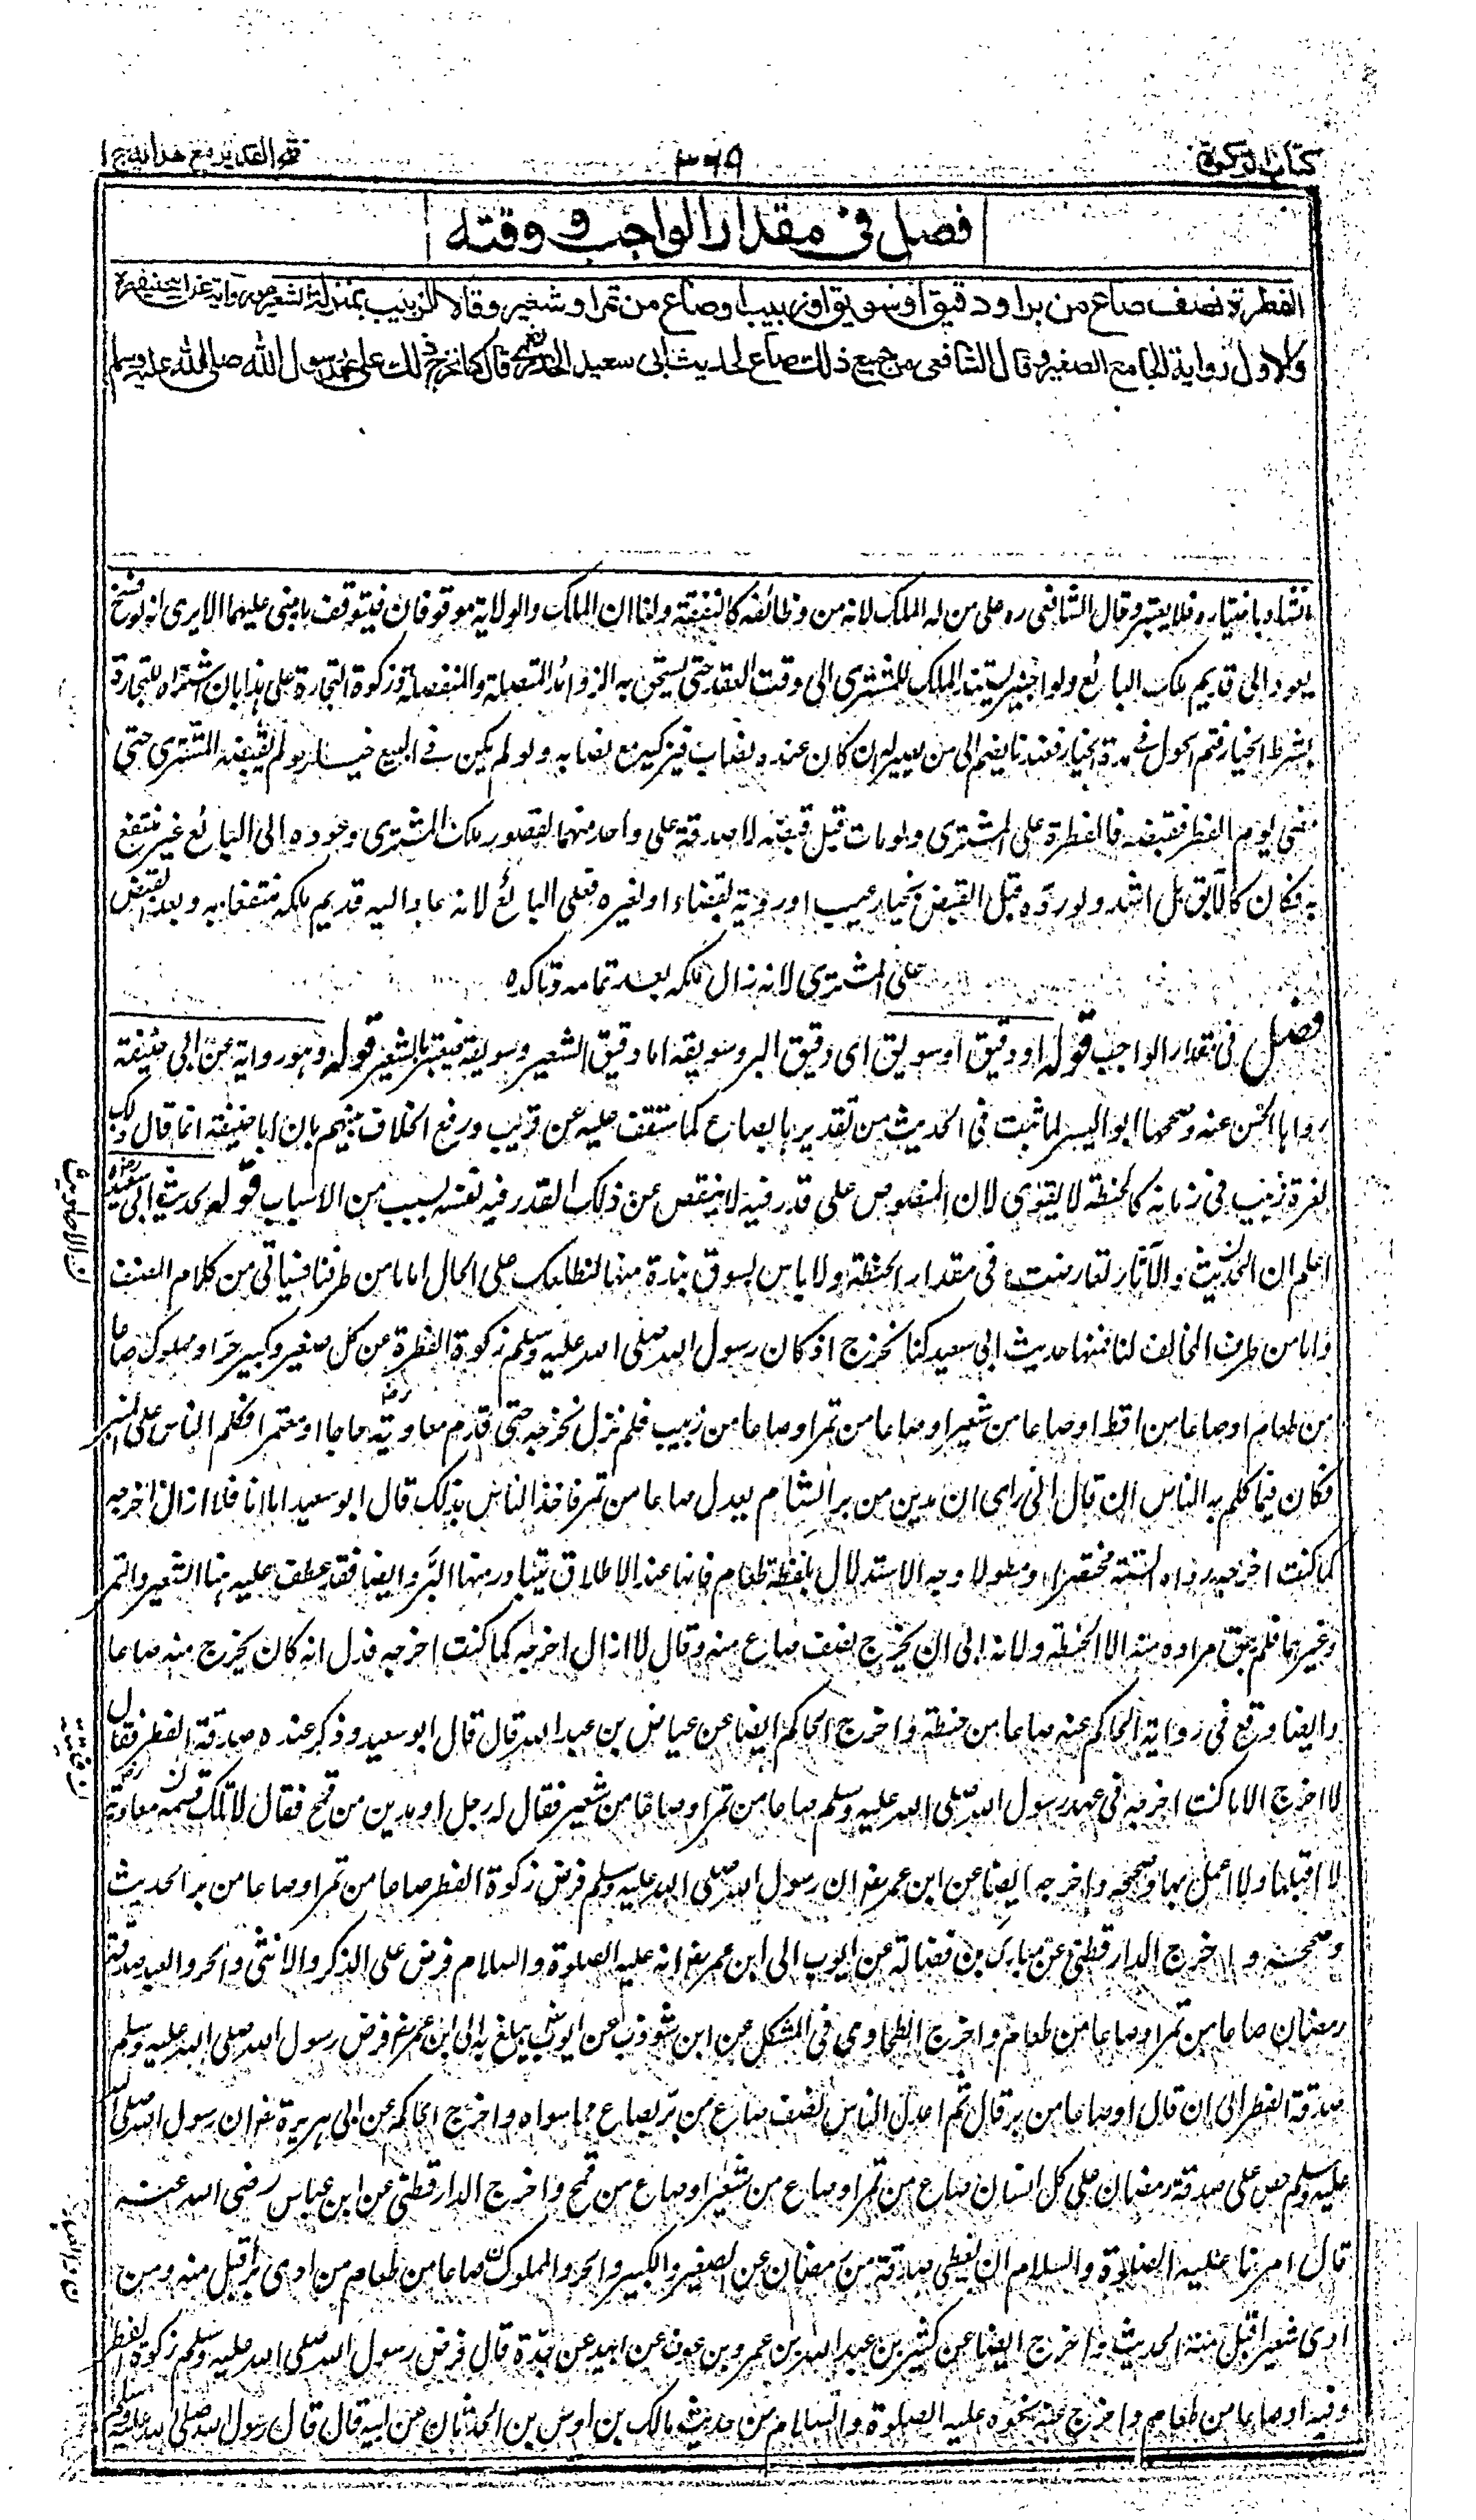 كتاب الزكوة
٣٦٩
فتح القدير مع هدايه ج ١
فصل في مقدار الواجب و وقته
الفطرة نصف صاع من بر او دقيق او سويق او زبيب او صاع من تمر او شعير وقالا الزبيب بمنزلة الشعير وهو رواية عن ابي حنيفة
والاول رواية الجامع الصغير وقال الشافعي من جميع ذلك صاع لحديث ابي سعيد الخدري قال كنا نخرج ذلك على عهد رسول الله صلى الله عليه وسلم
باختياره فلا يعتبر وقال الشافعي ره على من له الملك لانه من وظائفه كالنفقة ولنا ان الملك والولاية موقوفان فيتوقف ما يبنى عليهما الا يرى انه لو فسخ
يعود الى قديم ملك البائع ولو اجيز يستند الملك للمشترى الى وقت العقد حتى يستحق به الزوائد المتصلة والمنفصلة وزكوة التجارة على هذا بان اشتراه للتجارة
بشرط الخيار فتم الحول في مدة الخيار فعندنا يضم الى من يصير له ان كان عنده نصاب فيزكيه مع نصابه ولو لم يكن في البيع خيار ولم يقبضه المشترى حتى
مضى يوم الفطر فقبضه فالفطرة على المشترى ولو مات قبل قبضه لا صدقة على واحد منهما لقصور ملك المشترى وعوده الى البائع غير منتفع
به فكان كالآبق بل اشد ولو رده قبل القبض بخيار عيب او رؤية بقضاء او بغيره فعلى البائع لانه عاد اليه قديم ملكه منتفعا به وبعد القبض
على المشترى لانه زال ملكه بعد تمامه وتاكده
فصل في مقدار الواجب قوله او دقيق او سويق اى دقيق البر وسويقه اما دقيق الشعير وسويقه فيعتبر بالشعير قوله وهو رواية عن ابي حنيفة
رواها الحسن عنه وصححها ابو اليسر لما ثبت في الحديث من تقديره بالصاع كما ستقف عليه عن قريب ورفع الخلاف بينهم بان ابا حنيفة انما قال ذلك
لعزة زبيب في زمانه كالحنطة لا يقوى لان المنصوص على قدر فيه لا ينقص عن ذلك القدر فيه نفسه لسبب من الاسباب قوله لحديث ابي سعيد رضه
اعلم ان الحديث والآثار تعارضت في مقدار الحنطة ولا باس بسوق نبذة منها لنطلعك على الحال اما ما من طرفنا فسياتي من كلام المصنف
واما من طرف المخالف لنا فمنها حديث ابي سعيد كنا نخرج اذ كان رسول الله صلى الله عليه وسلم زكوة الفطرة عن كل صغير وكبير حر او مملوك صاعا
من طعام او صاعا من اقط او صاعا من شعير او صاعا من تمر او صاعا من زبيب فلم نزل نخرجه حتى قدم معاوية رضه حاجا او معتمرا فكلم الناس على المنبر
فكان فيما كلم به الناس ان قال انى راى ان مدين من بر الشام يعدل صاعا من تمر فاخذ الناس بذلك قال ابو سعيد اما انا فلا ازال اخرجه
كما كنت اخرجه رواه الستة مختصرا ومطولا وجه الاستدلال بلفظة طعام فانها عند الاطلاق يتبادر منها البر وايضا فقد عطف عليه هنا الشعير والتمر
وغيرهما فلم يبق مراده منه الا الحنطة ولانه ابى ان يخرج نصف صاع منه وقال لا ازال اخرجه كما كنت اخرجه فدل انه كان يخرج منه صاعا
وايضا وقع في رواية الحاكم عنه صاعا من حنطة واخرج الحاكم ايضا عن عياض بن عبد الله قال قال ابو سعيد وذكر عنده صدقة الفطر فقال
لا اخرج الا ما كنت اخرجه في عهد رسول الله صلى الله عليه وسلم صاعا من تمر او صاعا من شعير فقال له رجل او مدين من قمح فقال لا تلك قسمة معاوية رضه
لا اقبلها ولا اعمل بها وصححه واخرجه ايضا عن ابن عمر رض ان رسول الله صلى الله عليه وسلم فرض زكوة الفطر صاعا من تمر او صاعا من بر الحديث
وصححه واخرج الدارقطني عن مبارك بن فضالة عن ايوب الى ابن عمر رض انه عليه الصلوة والسلام فرض على الذكر والانثى والحر والعبد صدقة
رمضان صاعا من تمر او صاعا من طعام واخرج الطحاوي في المشكل عن ابن شوذب عن ايوب يبلغ به الى ابن عمر رض فرض رسول الله صلى الله عليه وسلم
صدقة الفطر الى ان قال او صاعا من بر قال ثم اعدل الناس نصف صاع من بر بصاع مما سواه واخرج الحاكم عن ابي هريرة رض ان رسول الله صلى الله
عليه وسلم حض على صدقة رمضان على كل انسان صاع من تمر او صاع من شعير او صاع من قمح واخرج الدارقطني عن ابن عباس رضي الله عنه
قال امرنا عليه الصلوة والسلام ان نعطى صدقة من رمضان عن الصغير والكبير والحر والمملوك صاعا من طعام من ادى برا قبل منه ومن
ادى شعيرا قبل منه الحديث واخرج ايضا عن كثير بن عبد الله بن عمرو بن عوف عن ابيه عن جده قال فرض رسول الله صلى الله عليه وسلم زكوة الفطر
وفيه او صاعا من طعام واخرج عنه نحوه عليه الصلوة والسلام من حديث مالك بن اوس بن الحدثان عن ابيه قال قال رسول الله صلى الله عليه وسلم